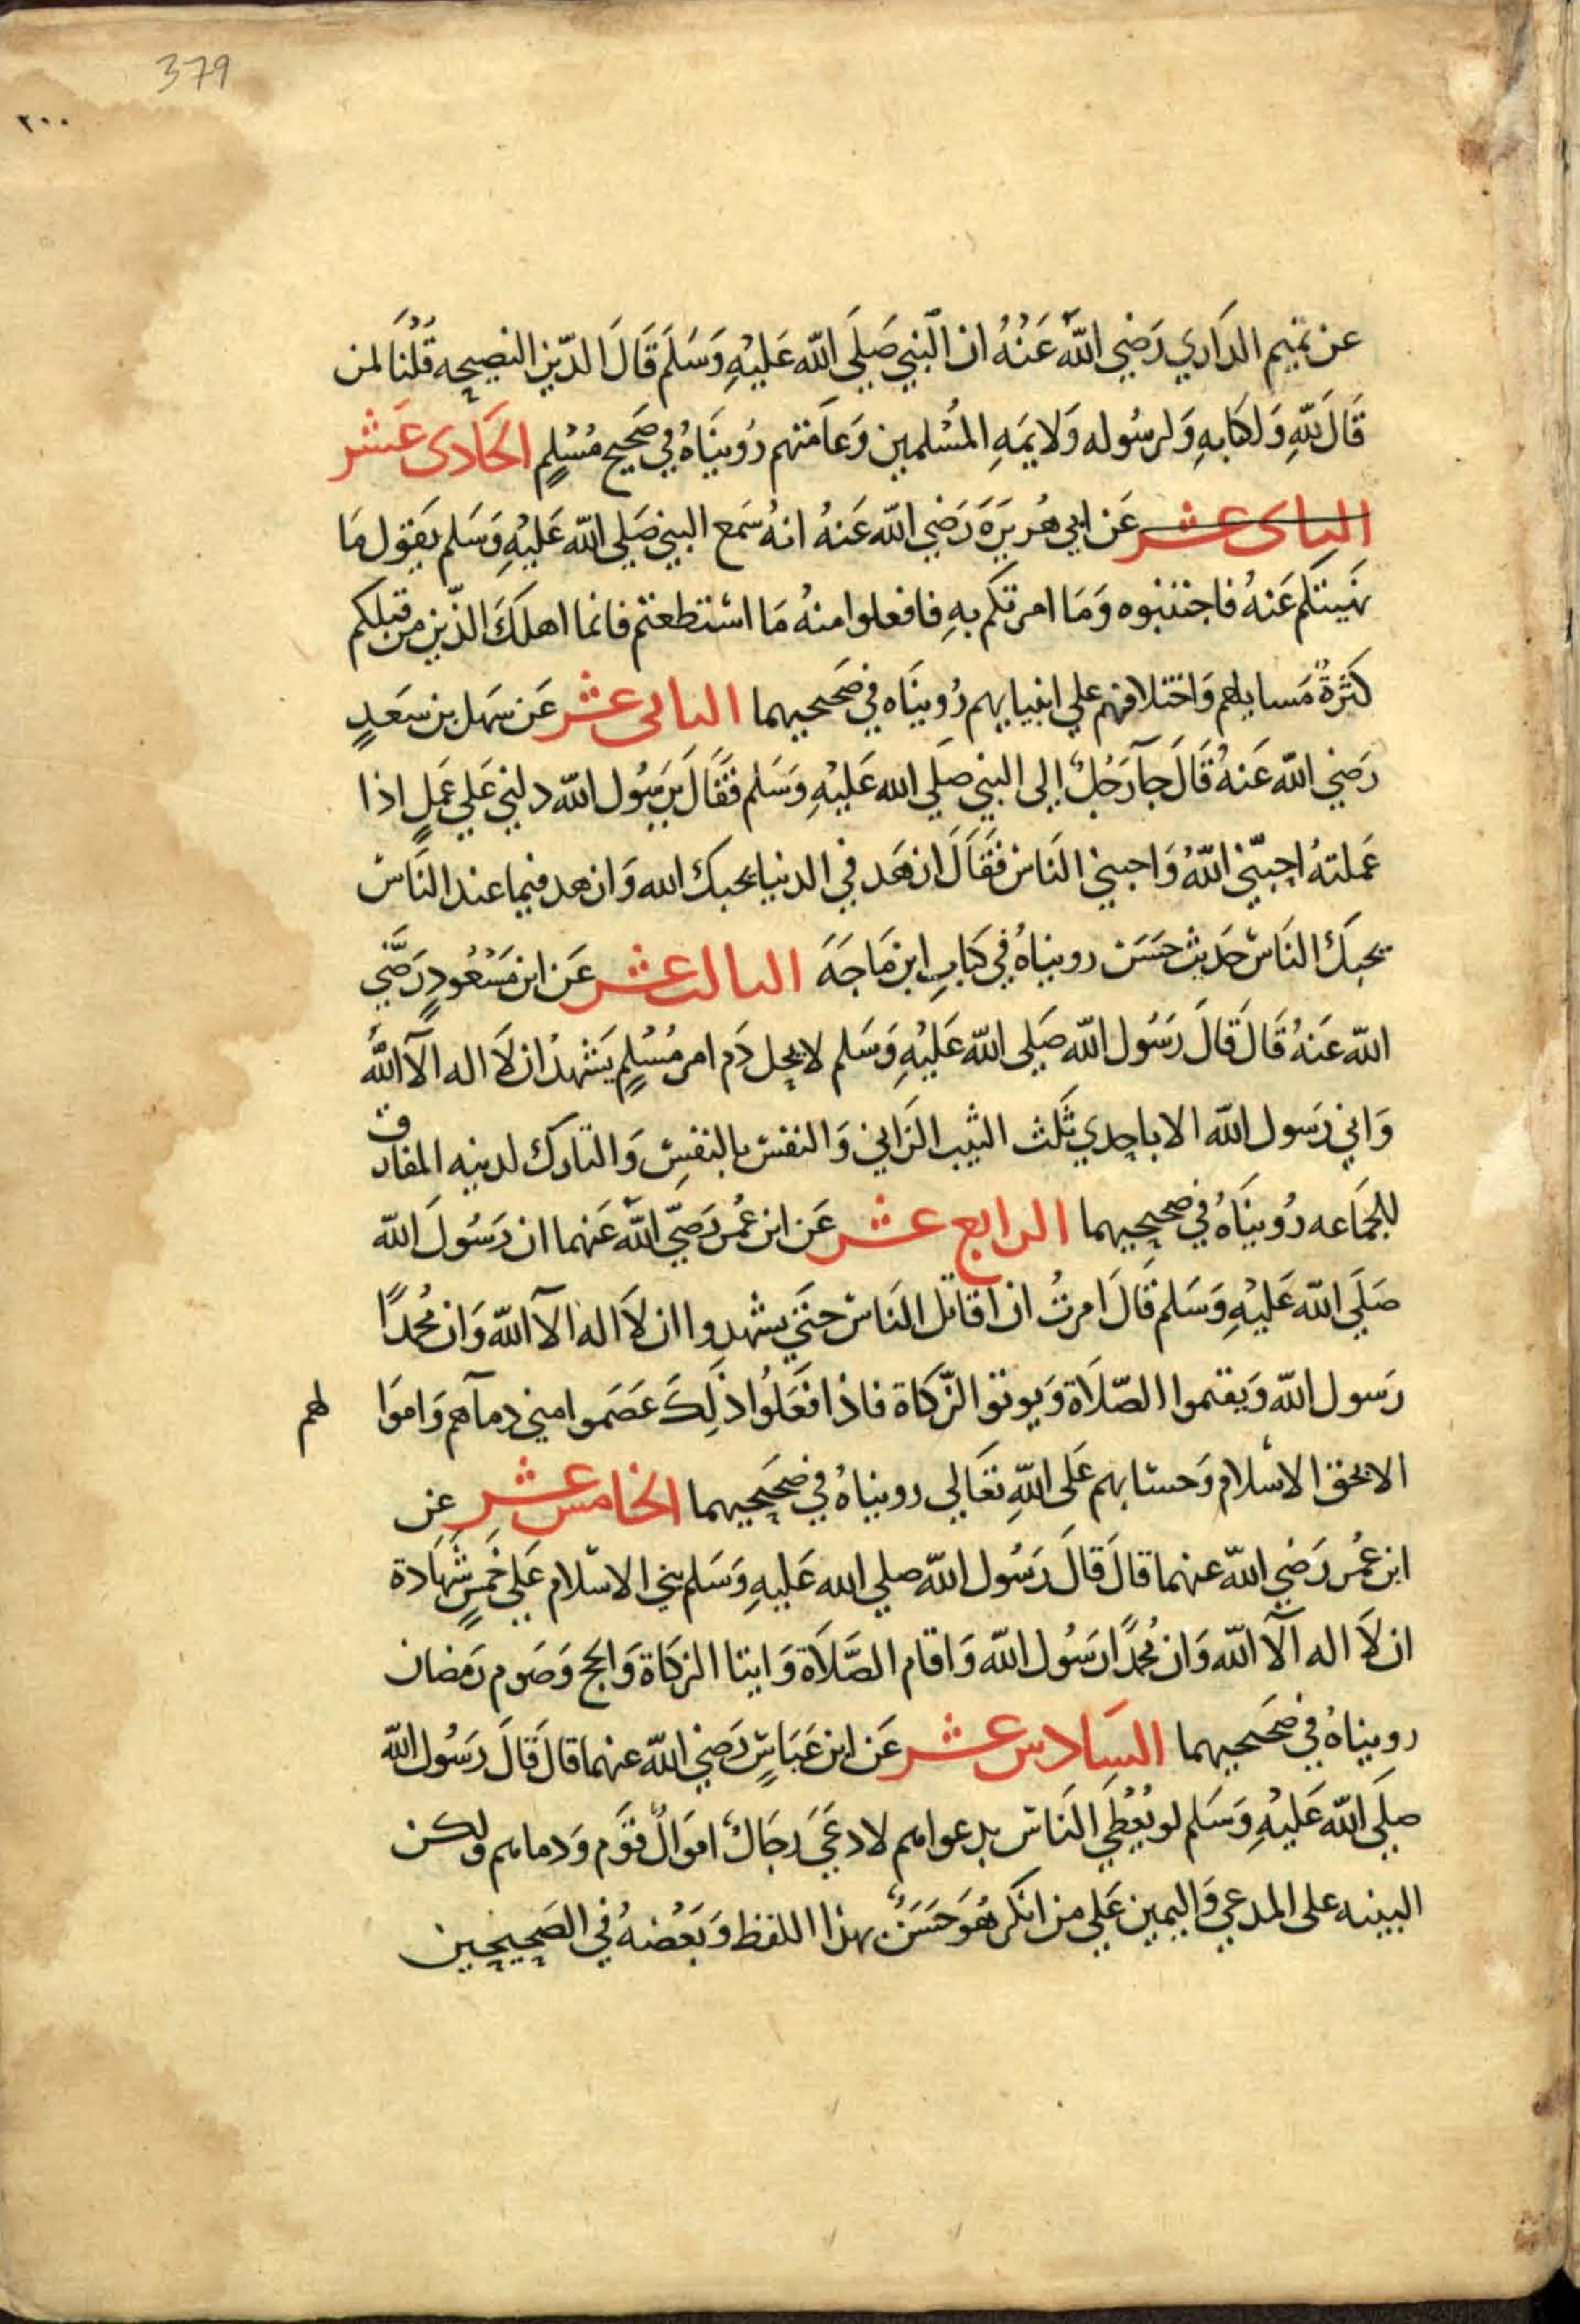 379
٢٠٠
عن تميم الداري رَضي اللّه عَنْهُ ان النبي صَلي اللّه عَليْهِ وَسَلم قَالَ الدّين النصيحه قُلْنَا لمن
قَالَ للّهِ وَلكتابهِ وَلرسُوله وَلايمَهِ المسُلمين وَعَامتهم رُويَناهُ في صَحيح مُسْلمٍ الحَادى عَشر
الثانى عشر عَن ابي هُريرَة رَضي اللّه عَنهُ انهُ سَمع النبي صَلي اللّه عَليْهِ وَسَلم يَقول مَا
نهَيتكم عَنهُ فاجتنبوه وَمَا امرتكم بهِ فافعلوا منهُ مَا استطعتم فانما اهلَكَ الذّين من قبلكم
كثرَةُ مَسايلهم وَاختلافهم علي انبيايهم رُويَناه في صَحيحيهما الثانى عشر عَن سَهل بن سَعَدٍ
رَضي اللّه عَنهُ قَالَ جآ رَجُلٌ إلى النبي صَلي اللّه عَليْهِ وَسَلم فقَالَ يَرسُول اللّه دلني عَلي عَملٍ اذا
عَملتهُ احبّني اللّهُ وَاحبني النَاسْ فقَالَ ازهَد في الدنيا يحبك اللّه وَازهد فيما عند النَاسْ
يحبكَ النَاسْ حَديث حَسَن رويناهُ في كتابِ ابن مَاجَهَ الثالث عشر عَن ابن مَسْعُودٍ رَضَي
اللّه عَنهُ قَالَ قَالَ رَسُول اللّه صَلي اللّه عَليْهِ وَسَلم لا يحل دَم امر مُسْلمٍ يَشهدُ ان لَا اله الآ اللّه
وَاني رَسول اللّه الا باحدي ثَلث الثيب الزاني وَالنفسْ بالنفسِ وَالتارك لدينه المفارق
للجَماعه رُويَناهُ في صحيحيهما الرابع عشر عَن ابن عُمرَ رَضيَ اللّه عَنهما ان رَسُولَ اللّه
صَلَي اللّه عَليْهِ وَسَلم قَالَ امرتُ ان اقاتل النَاسْ حتَي يشهدوا ان لَا اله الآ اللّه وَان محُمدًا
رَسول اللّه وَيقيموا الصّلَاة وَيوتوا الزّكاة فاذا فعَلُوا ذلِكَ عَصَموا مني دمآهم وَاموَا لهم
الا بحق الاسْلام وَحسَابهم عَلَى اللّهِ تعَالي رويناهُ في صَحيحيهما الخامس عشر عن
ابن عُمرَ رَضي اللّه عنهما قالَ قَالَ رَسُول اللّه صلي اللّه عَليهِ وَسَلم بني الاسْلام عَلي خَمسٍ شهَادة
ان لَا اله الآ اللّه وَان محُمدًا رَسُول اللّه وَاقام الصَّلَاة وَايتا الزكَاة وَالحج وَصَوم رَمضان
رويناهُ في صَحيحيهما السَادس عشر عَن ابن عَبَاسٍ رَضي اللّه عنهما قالَ قَالَ رَسُول اللّه
صلَي اللّه عَليْهِ وَسَلم لو يُعْطَي النَاسْ بدعواهم لادعَيَ رجَالٌ اموَالُ قوَم وَدماهم ولكن
البينه على المدعي وَاليمين عَلي من انكر هُوَ حَسَنٌ بهذا اللفظ وَبَعْضهُ في الصَحيحين